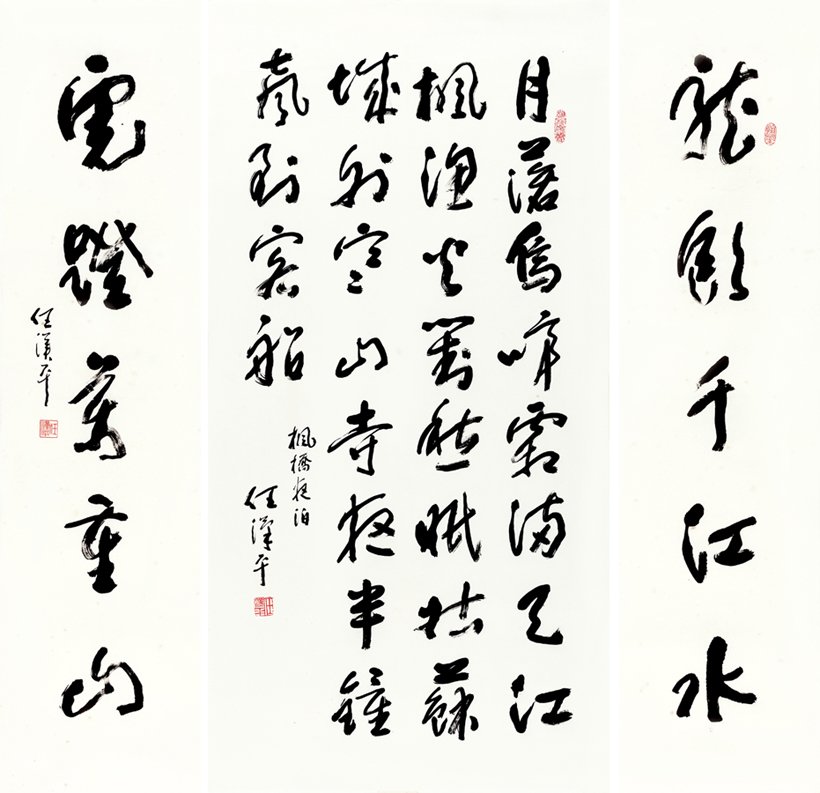 龍飲千江水
月落烏啼霜滿天江
楓漁火對愁眠姑蘇
城外寒山寺夜半鐘
聲到客船
楓橋夜泊
任漢平
虎蹬萬重山
任漢平